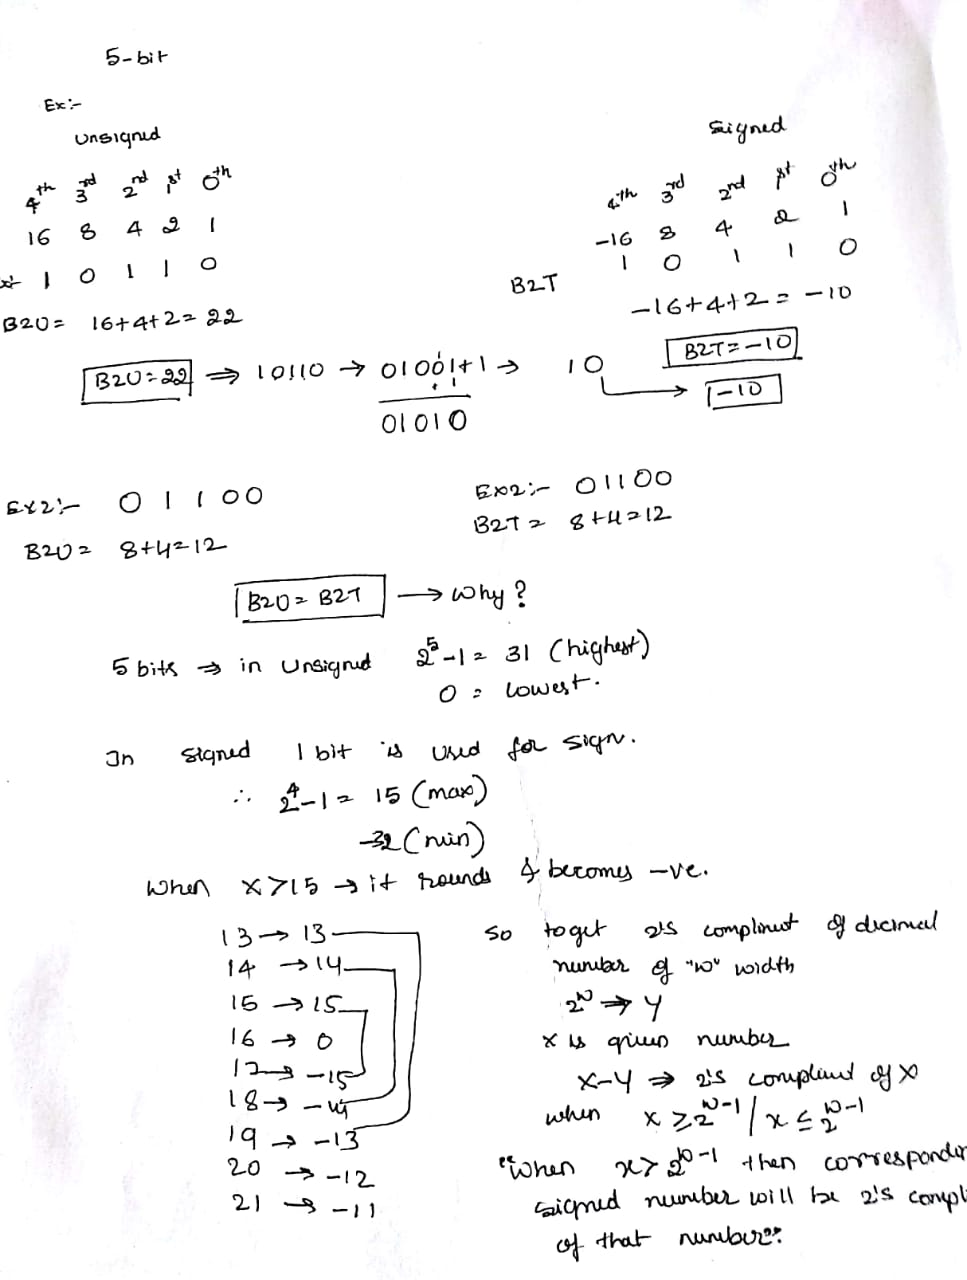 5-bit
Ex:-
Unsigned
4th 3rd 2nd 1st 0th
16 8 4 2 1
1 0 1 1 0
B2U = 16+4+2= 22
Signed
4th 3rd 2nd 1st 0th
-16 8 4 2 1
1 0 1 1 0
B2T
-16+4+2 = -10
B2T=-10
B2U=22 ⇒ 10110 → 01001+1 → 10
+1
01010
-10
Ex2:- 01100
B2U = 8+4=12
Ex2:- 01100
B2T = 8+4=12
B2U = B2T → Why?
5 bits ⇒ in Unsigned 2^5-1 = 31 (highest)
0 = lowest.
In signed 1 bit is used for sign.
∴ 2^4-1 = 15 (max)
-32 (min)
When x>15 → it rounds & becomes -ve.
13 → 13
14 → 14
15 → 15
16 → 0
17 → -15
18 → -14
19 → -13
20 → -12
21 → -11
So to get 2's compliment of decimal
number of "w" width
2^w ⇒ Y
x is given number
x-Y ⇒ 2's compliment of x
when x ≥ 2^w-1 / x ≤ 2^w-1
"When x > 2^w-1 then
signed number will be 2's
of that number"